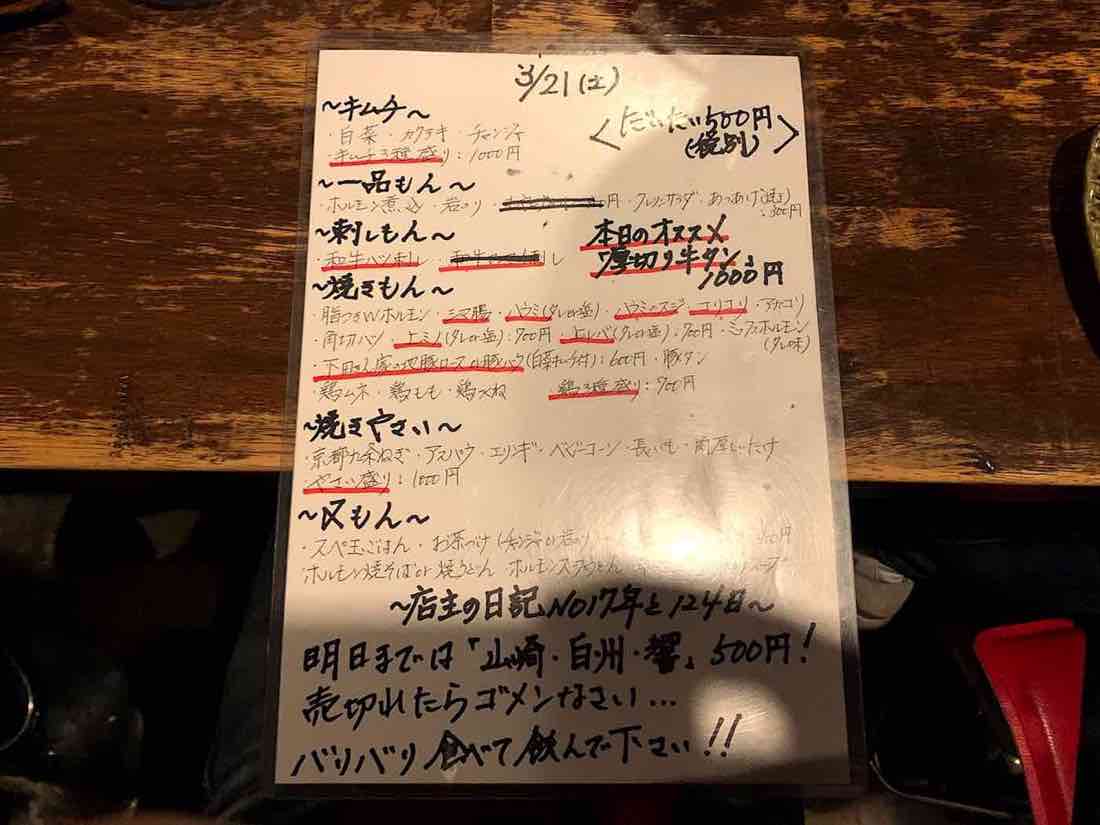 3/21(土)
～キムチ～
＜だいたい500円
(税別)＞
・白菜・カクテキ・チャンジャ
・キムチ3種盛り：1000円
～一品もん～
・ホルモン煮込・岩のり・円・クレソンサラダ・あつあげ
：300円
～刺しもん～
・和牛ハツ刺し・和牛刺し
本日のオススメ
厚切り牛タン
1000円
～焼きもん～
・脂つきWホルモン・シマ腸・ハラミ(タレor塩)・ハラミスジ・コリコリ・アカコリ
・角切ハツ・上ミノ(タレor塩)：900円・上レバ(タレor塩)：900円・ミックスホルモン
(タレor味)
(白菜キムチ付)：600円・豚タン
・鶏ムネ・鶏もも・鶏つくね
鶏3種盛り：900円
～焼きやさい～
・京都九条ねぎ・アスパラ・エリンギ・ベビーコーン・長いも・肉厚しいたけ
・やさい盛り：1000円
～〆もん～
・スペ玉ごはん・お茶づけ(チャンジャor岩のり)
ホルモン焼そばor焼うどん
～店主の日記NO17年と124日～
明日までは「山崎・白州・響」500円！
売切れたらゴメンなさい…
バリバリ食べて飲んで下さい!!